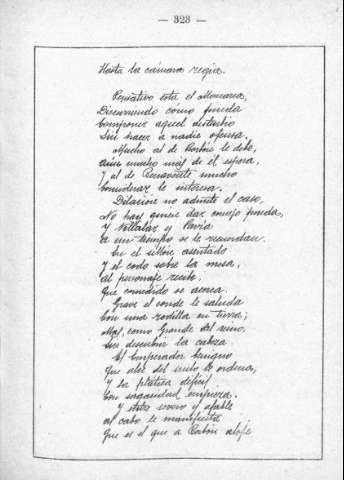 — 323 —
Hasta la cámara regia.
Pensativo está el Monarca,
Discurriendo cómo pueda
Componer aquel disturbio
Sin hacer a nadie ofensa.
Mucho al de Borbón le debe,
Aún mucho más de él espera,
Y al de Benavente mucho
Considerar le interesa.
Dilación no admite el caso,
No hay quien dar consejo pueda,
Y Villalar y Pavía
a un tiempo se le recuerdan.
En el sillón asentado
Y el codo sobre la mesa,
Al personaje recibe,
Que comedido se acerca.
Grave el conde le saluda
Con una rodilla en tierra;
Mas, como Grande del reino,
Sin descubrir la cabeza.
El Emperador benigno
Que alce del suelo le ordena,
Y la plática difícil
Con sagacidad empieza.
Y entre severo y afable
al cabo le manifiesta
Que es el que a Borbón aloje